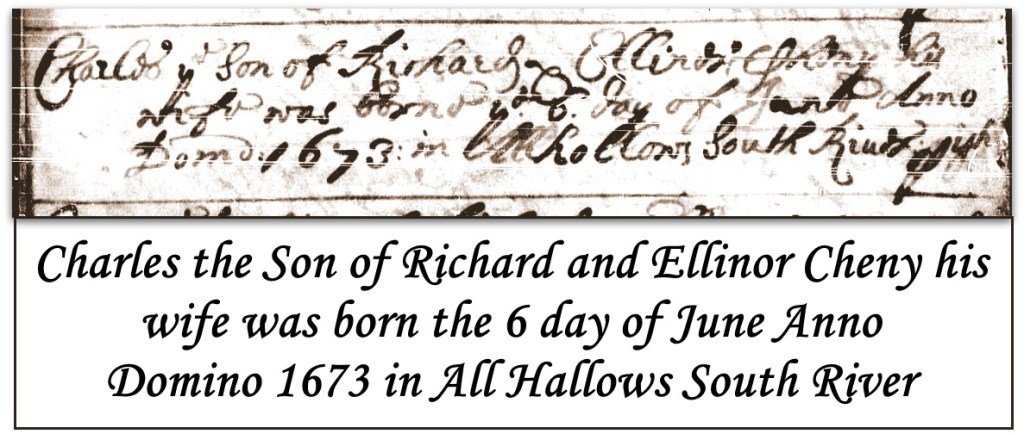 Charles yᵉ Son of Richard & Ellinor Cheny his
wife was borne yᵉ 6 day of June Anno
1673: in Allhollows South River
Charles the Son of Richard and Ellinor Cheny his
wife was born the 6 day of June Anno
Domino 1673 in All Hallows South River